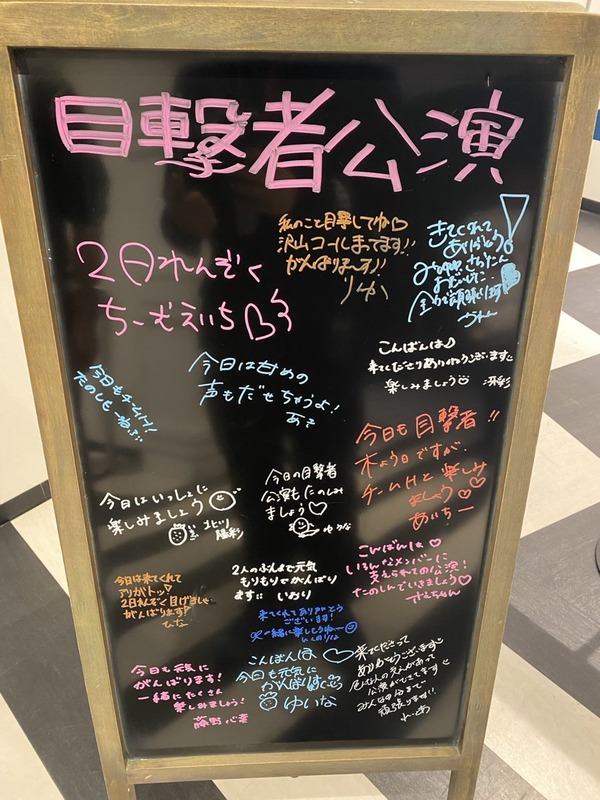 目撃者公演
私のこと目撃してね♡
沢山コールまってます!!
がんばりまーす!!
りか
きてくれて
ありがとう!
全力で頑張ります
2日れんぞく
ちーむえいち
こんばんは♪
来てくださりありがとうございます
楽しみましょう
冴彩
今日は甘めの
声もだせちゃうよ!
あき
今日もチームH!
たのしもーね
今日も目撃者!!
木よう日ですが、
チームHと楽しみ
ましょう♡♡
あいちー
今日はいっしょに
楽しみましょう
北川 陽彩
今日の目撃者
公演もたのしみ
ましょう♡
ゆうな
こんばんは♡
いろんなメンバーに
支えられての公演!
たのしんでいきましょう♡
さえちゃん
今日は来てくれて
アリがトッ
2日れんぞく目げきしゃ
がんばります!
ひな
2人のぶんまで元気
もりもりでがんばり
ます!! いおり
来てくれてありがとう
ございます!
一緒に楽しもうねー
こんばんは♡
今日も元気に
がんばります
ゆいな
来てくださって
ありがとうございます
公演ができてます
みんなの分まで
頑張ります!!
今日も元気に
がんばります!
一緒にたくさん
楽しみましょう!
藤野 心葉